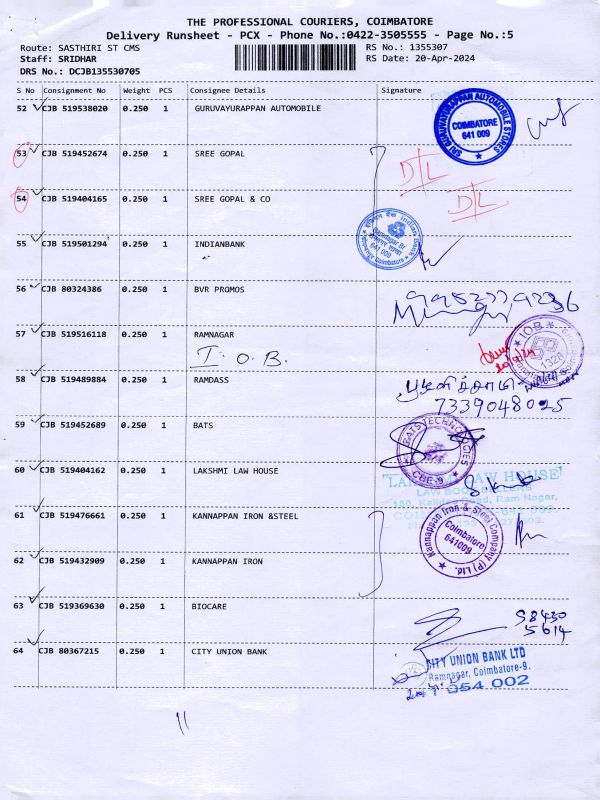 THE PROFESSIONAL COURIERS, COIMBATORE
Delivery Runsheet - PCX - Phone No.:0422-3505555 - Page No.:5
Route: SASTHIRI ST CMS RS No.: 1355307
Staff: SRIDHAR RS Date: 20-Apr-2024
DRS No.: DCJB135530705
S No Consignment No Weight PCS Consignee Details Signature
52 CJB 519538020 0.250 1 GURUVAYURAPPAN AUTOMOBILE
SRI GURUVAYURAPPAN AUTOMOBILE STORES
COIMBATORE
641 009
53 CJB 519452674 0.250 1 SREE GOPAL
D/L
54 CJB 519404165 0.250 1 SREE GOPAL & CO
D/L
55 CJB 519501294 0.250 1 INDIANBANK
Indian Bank
Ramnagar Br
641 009
Coimbatore
56 CJB 80324386 0.250 1 BVR PROMOS
57 CJB 519516118 0.250 1 RAMNAGAR
I. O. B.
IOB
1328
58 CJB 519489884 0.250 1 RAMDASS
7339048025
59 CJB 519452689 0.250 1 BATS
BATS TECHNOLOGIES
CBE-9
60 CJB 519404162 0.250 1 LAKSHMI LAW HOUSE
LAW HOUSE
Ram Nagar,
61 CJB 519476661 0.250 1 KANNAPPAN IRON &STEEL
Kannappan Iron & Steel Company (P) Ltd.
Coimbatore
641009
62 CJB 519432909 0.250 1 KANNAPPAN IRON
63 CJB 519369630 0.250 1 BIOCARE
98430
5614
64 CJB 80367215 0.250 1 CITY UNION BANK
CITY UNION BANK LTD
Ramnagar, Coimbatore-9.
054 002